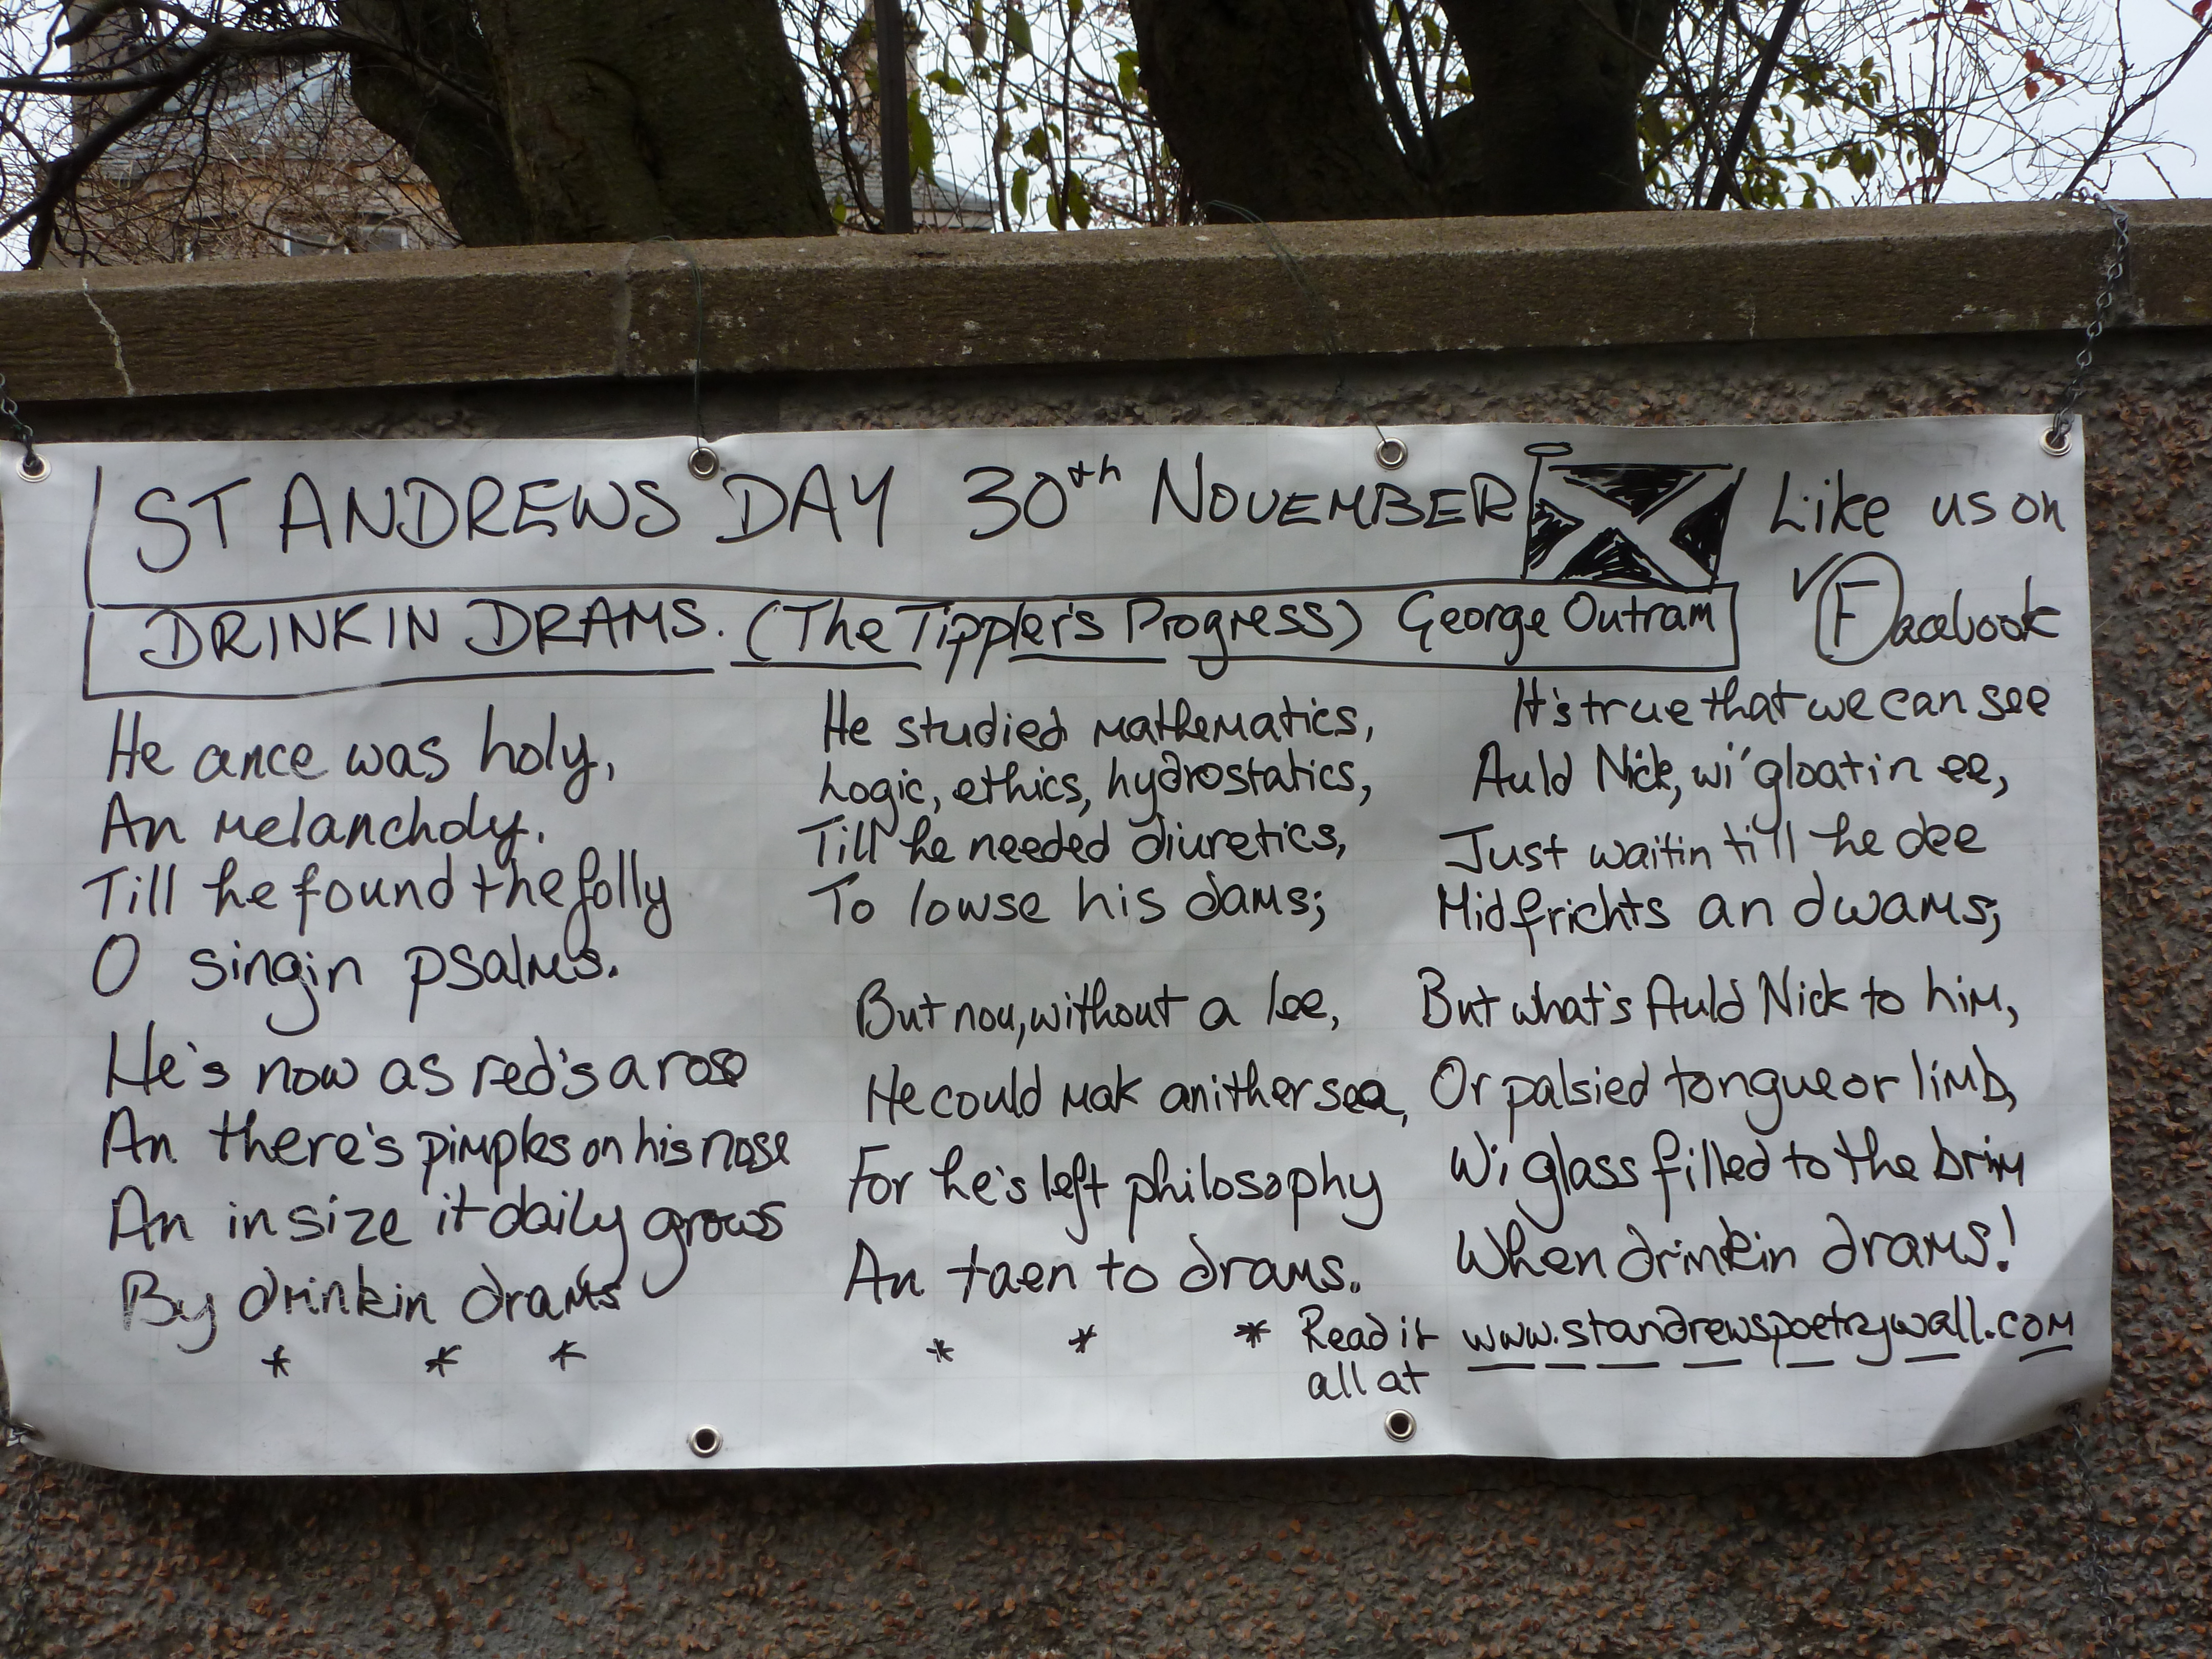 ST ANDREWS DAY 30th NOVEMBER
Like us on
Facebook
DRINKIN DRAMS. (The Tippler's Progress) George Outram
He ance was holy,
An melancholy.
Till he found the folly
O singin psalms.
He's now as red's a rose
An there's pimples on his nose
An in size it daily grows
By drinkin drams
* * *
He studied mathematics,
Logic, ethics, hydrostatics,
Till he needed diuretics,
To lowse his dams;
But nou, without a lee,
He could mak anither sea,
For he's left philosophy
An taen to drams.
* * *
It's true that we can see
Auld Nick, wi' gloatin ee,
Just waitin till he dee
Mid frichts an dwams;
But what's Auld Nick to him,
Or palsied tongue or limb,
Wi glass filled to the brim
When drinkin drams!
Read it all at www.standrewspoetrywall.com